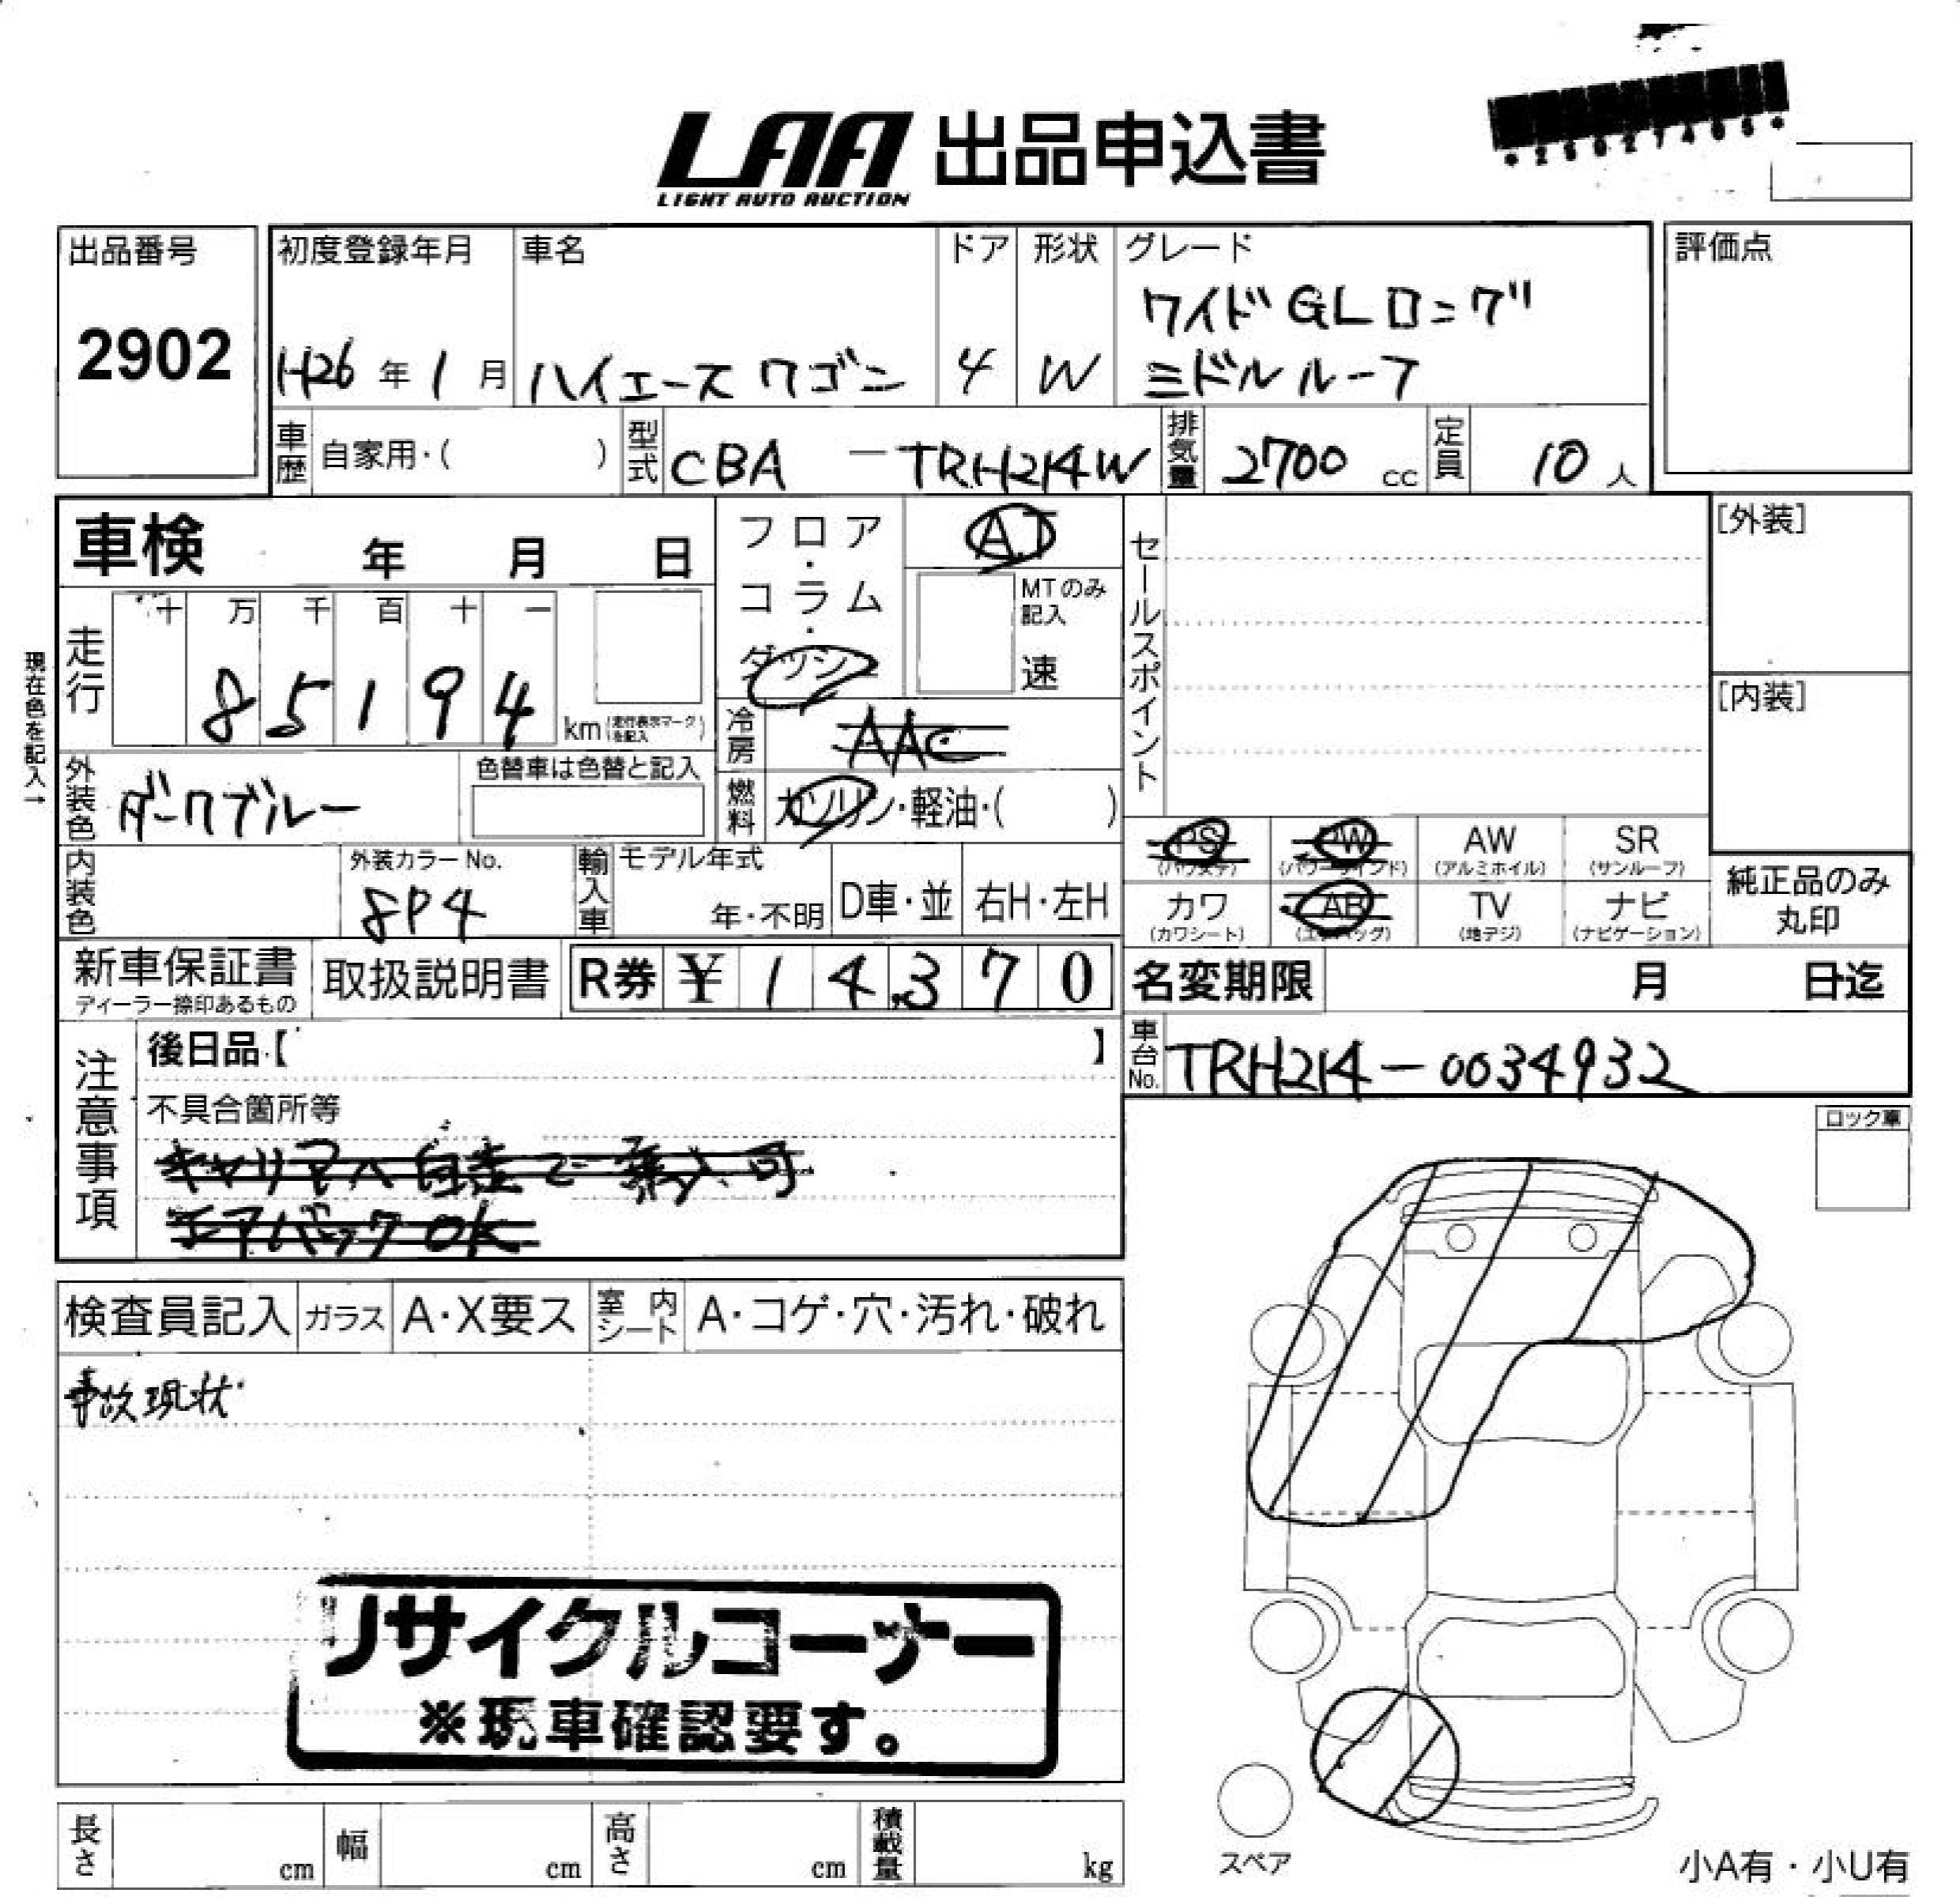 LAA 出品申込書
LIGHT AUTO AUCTION
出品番号
2902
初度登録年月
H26年1月
車名
ハイエースワゴン
ドア
4
形状
W
グレード
ワイドGLロング
ミドルルーフ
評価点
車歴 自家用・( )
型式 CBA-TRH214W
排気量 2700cc
定員 10人
車検 年 月 日
フロア・コラム・ダッシュ
AT
MTのみ記入
速
セールスポイント
[外装]
[内装]
現在色を記入→
走行 十 万 千 百 十 一
85194 km (走行表示マークを記入)
冷房 AAC
外装色 ダークブルー
色替車は色替と記入
燃料 ガソリン・軽油・( )
内装色
外装カラーNo.
8P4
輸入車 モデル年式
年・不明
D車・並
右H・左H
PS
(パワステ)
PW
(パワーウインド)
AW
(アルミホイル)
SR
(サンルーフ)
カワ
(カワシート)
AB
(エアバッグ)
TV
(地デジ)
ナビ
(ナビゲーション)
純正品のみ
丸印
新車保証書
ディーラー捺印あるもの
取扱説明書
R券 ¥14,370
名変期限 月 日迄
車台No. TRH214-0034932
注意事項
後日品【 】
不具合箇所等
キャリアへ自走で乗入可
エアバックOK
ロック車
検査員記入
ガラス A・X要ス
室内シート A・コゲ・穴・汚れ・破れ
事故現状
リサイクルコーナー
※現車確認要す。
長さ cm
幅 cm
高さ cm
積載量 kg
スペア
小A有・小U有